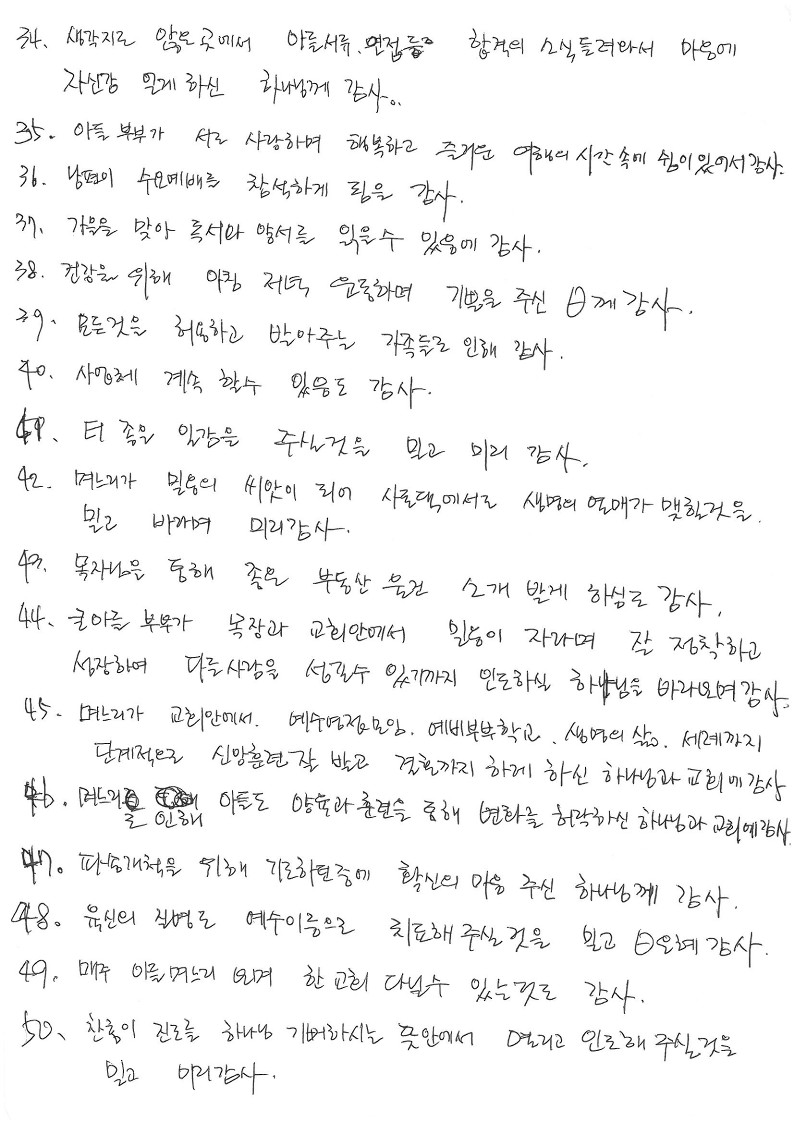 34. 생각지도 않은 곳에서 아들서류, 면접등 합격의 소식들려와서 마음에
자신감 얻게 하신 하나님께 감사..
35. 아들 부부가 서로 사랑하며 행복하고 즐거운 여행의 시간 속에 쉼이 있어서 감사.
36. 남편이 수요예배를 참석하게 됨을 감사.
37. 가을을 맞아 독서와 양서를 읽을 수 있음에 감사.
38. 건강을 위해 아침 저녁 운동하며 기쁨을 주신 께 감사.
39. 모든것을 허용하고 받아주는 가족들로 인해 감사.
40. 사업체 계속 할수 있음도 감사.
41. 더 좋은 일감을 주실것을 믿고 미리 감사.
42. 며느리가 믿음의 씨앗이 되어 사돈댁에서도 생명의 열매가 맺힐것을
믿고 바라며 미리감사.
43. 목자님을 통해 좋은 부동산 물건 소개 받게 하심도 감사.
44. 큰아들 부부가 목장과 교회안에서 믿음이 자라며 잘 정착하고
성장하여 다른사람을 섬길수 있기까지 인도하실 하나님을 바라보며 감사.
45. 며느리가 교회안에서. 예수영접모임. 예비부부학교. 생명의 삶. 세례까지
단계적으로 신앙훈련 잘 받고 결혼까지 하게 하신 하나님과 교회에 감사
46. 며느리로 인해 아들도 양육과 훈련을 통해 변화를 허락하신 하나님과 교회에 감사
47. 파송개척을 위해 기도하던중에 확신의 마음 주신 하나님께 감사.
48. 육신의 질병도 예수이름으로 치료해 주실 것을 믿고 감사.
49. 매주 아들며느리 보며 한 교회 다닐수 있는것도 감사.
50. 진로를 하나님 기뻐하시는 뜻안에서 열리고 인도해 주실것을
믿고 미리감사.